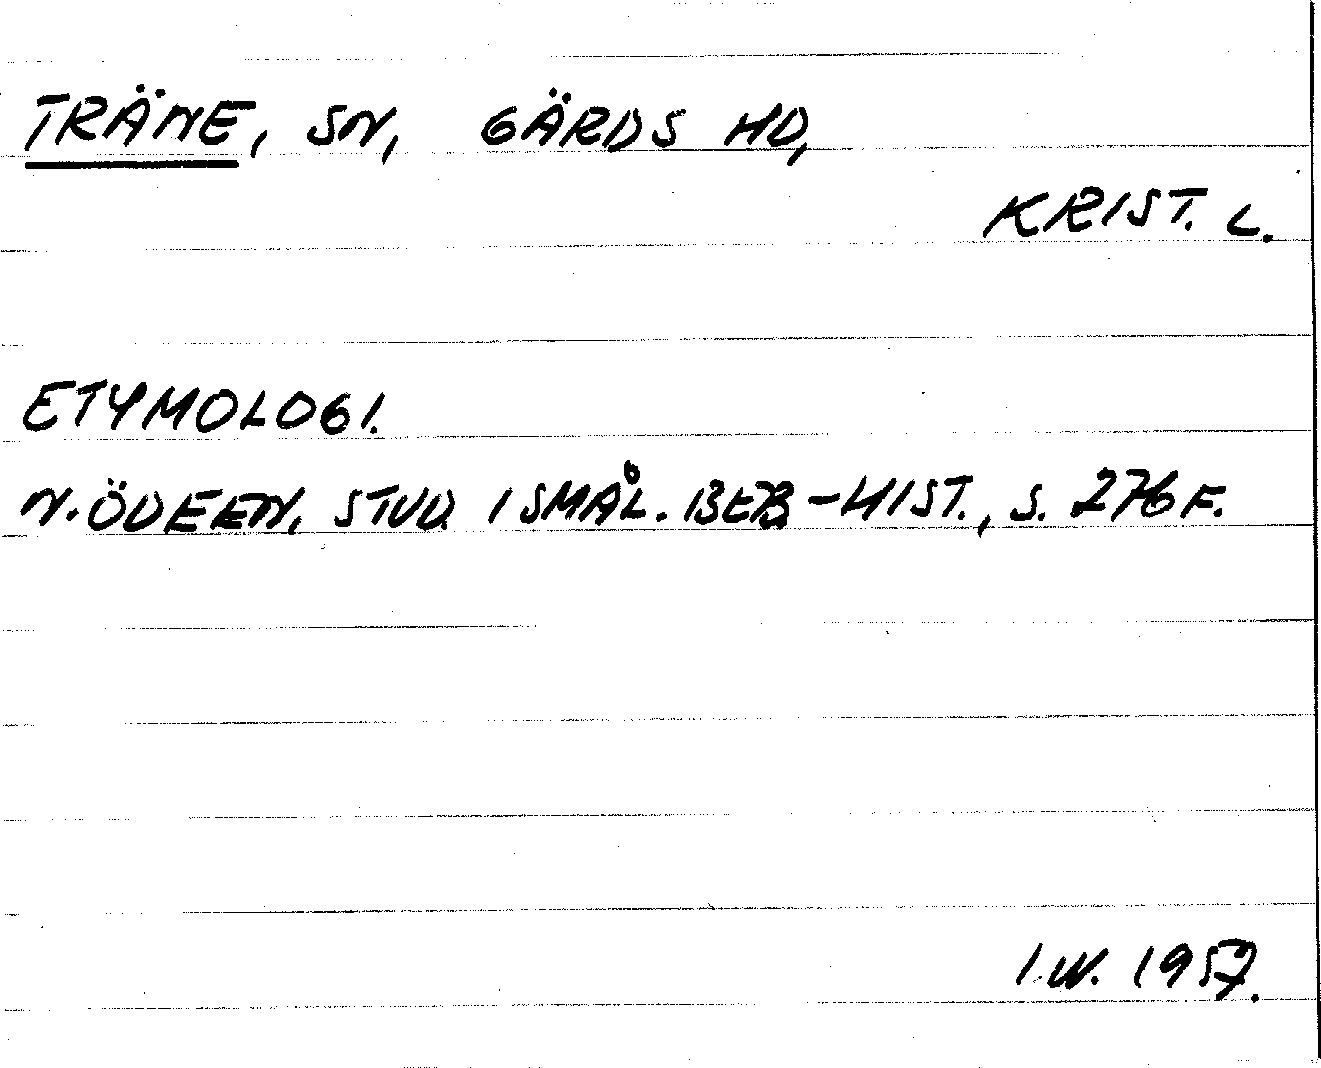 TRÄNE, SN, GÄRDS HD,
KRIST. L.
ETYMOLOGI.
N. ÖDEEN, STUD. I SMÅL. BEB-HIST., S. 276 F.
I.W. 1957.